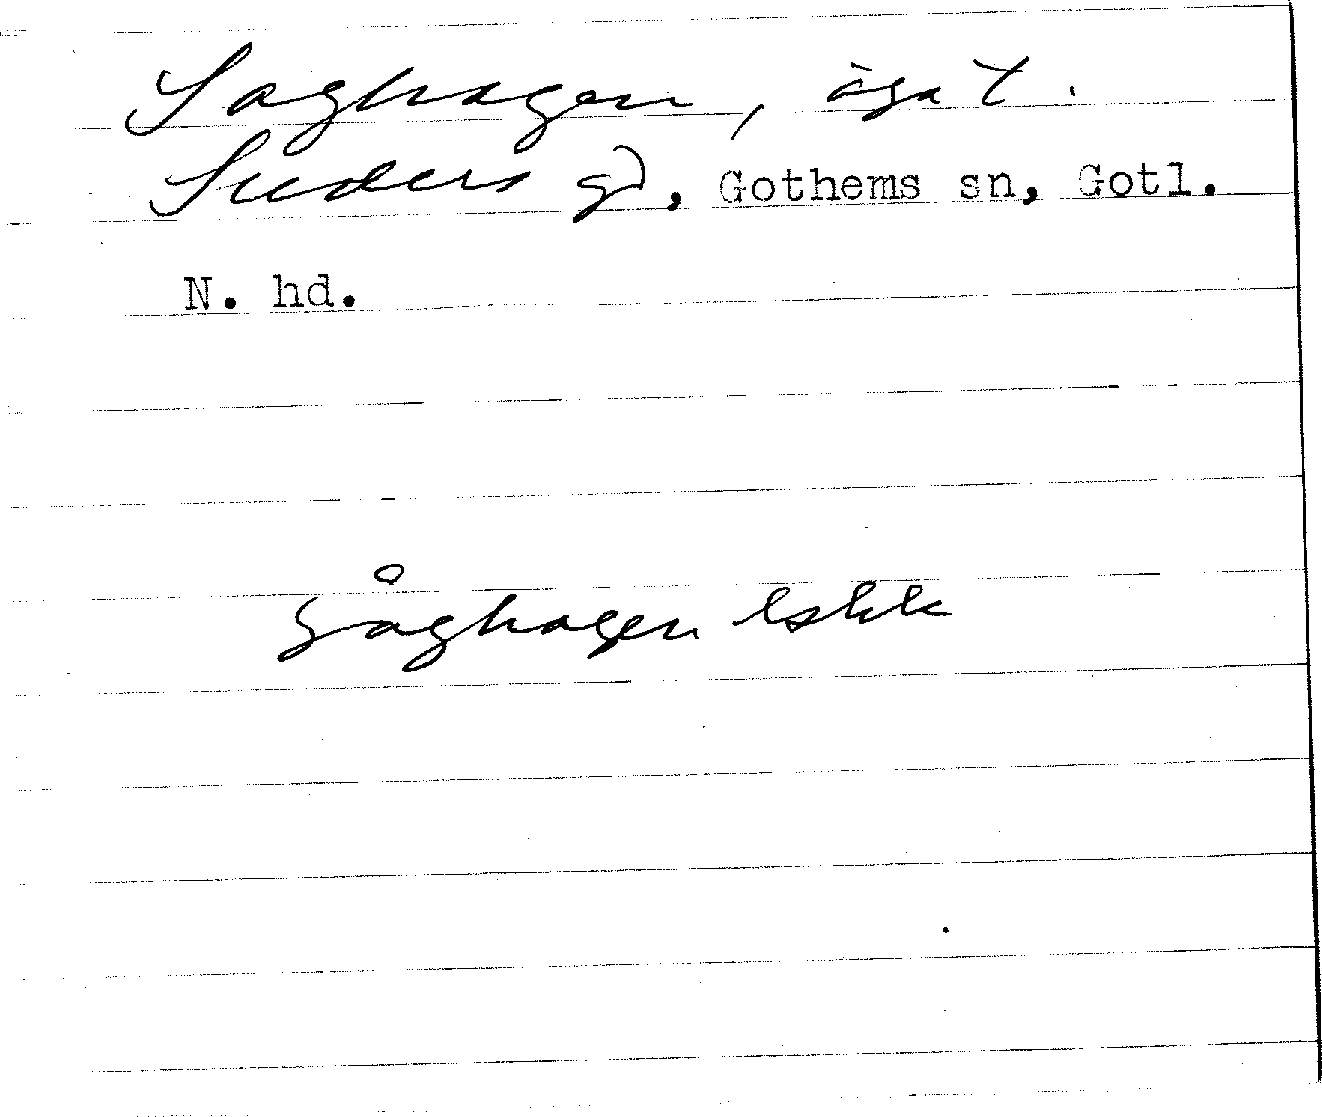 Saghagen, äga t.
Suders gd, Gothems sn, Gotl.
N. hd.
Såghagen lskk